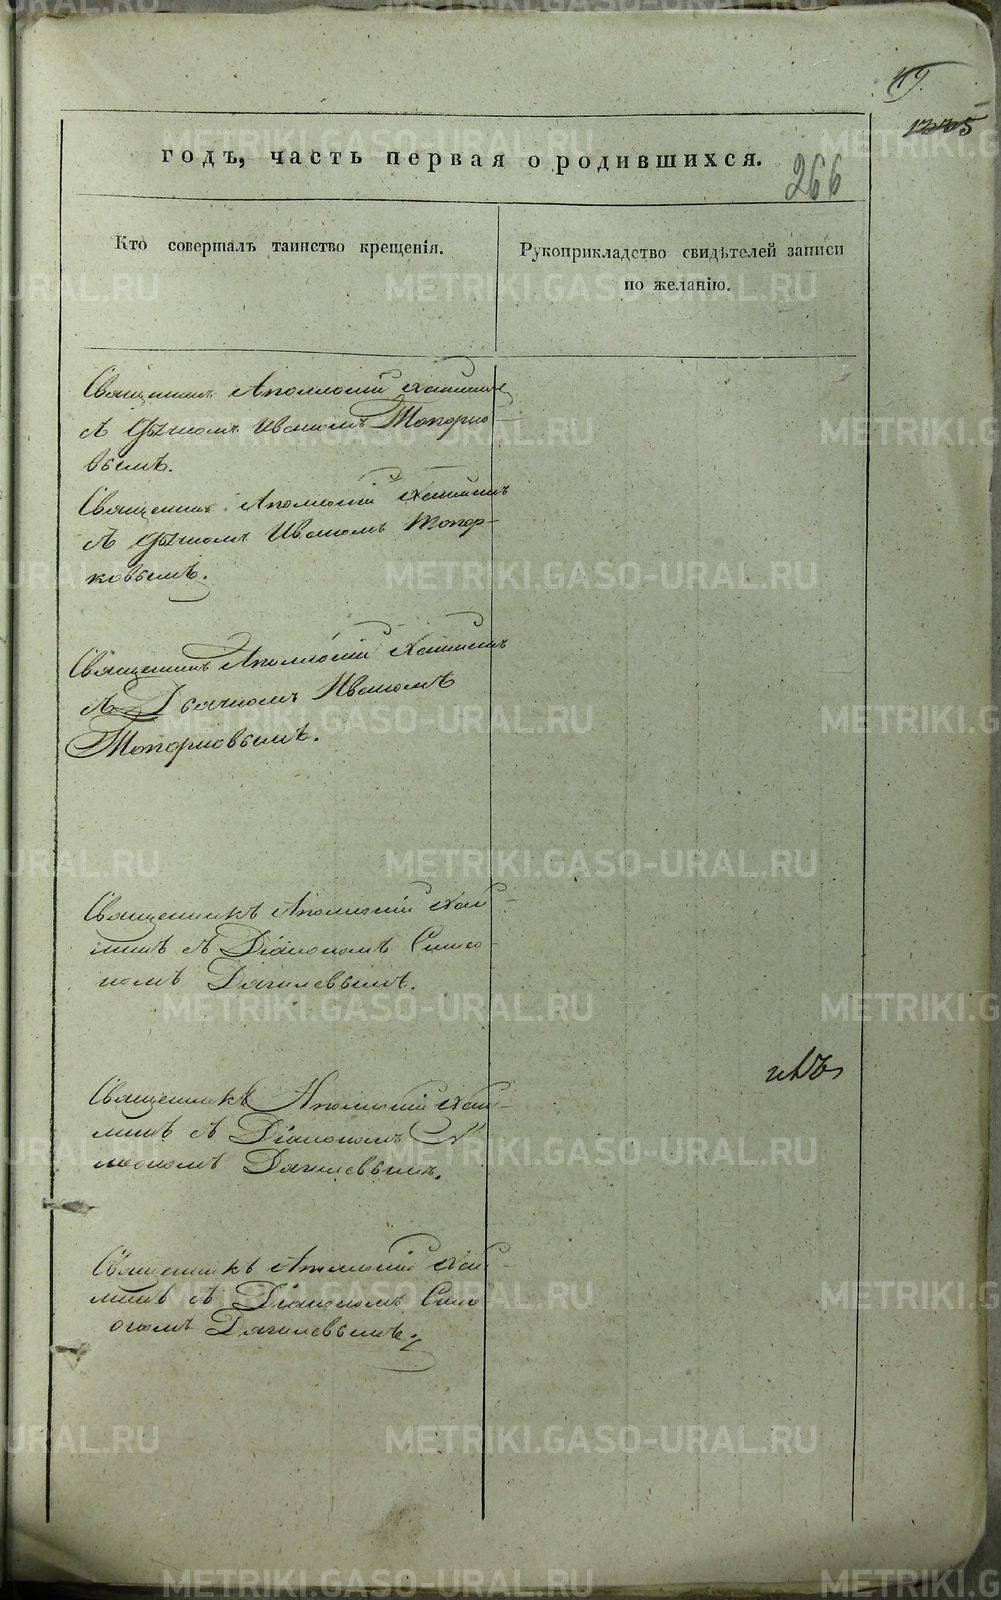 годъ, часть первая о родившихся.
266
Кто совершалъ таинство крещенія.
Рукоприкладство свидѣтелей записи
по желанію.
Священникъ Аполлоній
съ Дьячкомъ Иваномъ Топорко-
вымъ.
Священникъ Аполлоній
съ Дьячкомъ Иваномъ Топор-
ковымъ.
Священникъ Аполлоній
съ Дьячкомъ Иваномъ
Топорковымъ.
Священникъ Аполлоній
съ Діакономъ Симео-
номъ Дягилевымъ.
Священникъ Аполлоній
съ Діакономъ Си-
меономъ Дягилевымъ.
Священникъ Аполлоній
съ Діакономъ Симе
ономъ Дягилевымъ.
METRIKI.GASO-URAL.RU